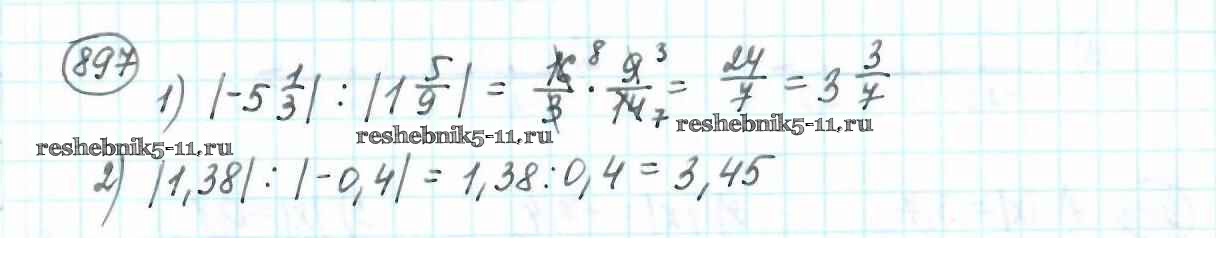 897
1) |-5 1/3| : |1 5/9| = 16/3 8 · 9/14 3 7 = 24/7 = 3 3/7
reshebnik5-11.ru reshebnik5-11.ru reshebnik5-11.ru
2) |1,38| : |-0,4| = 1,38:0,4 = 3,45